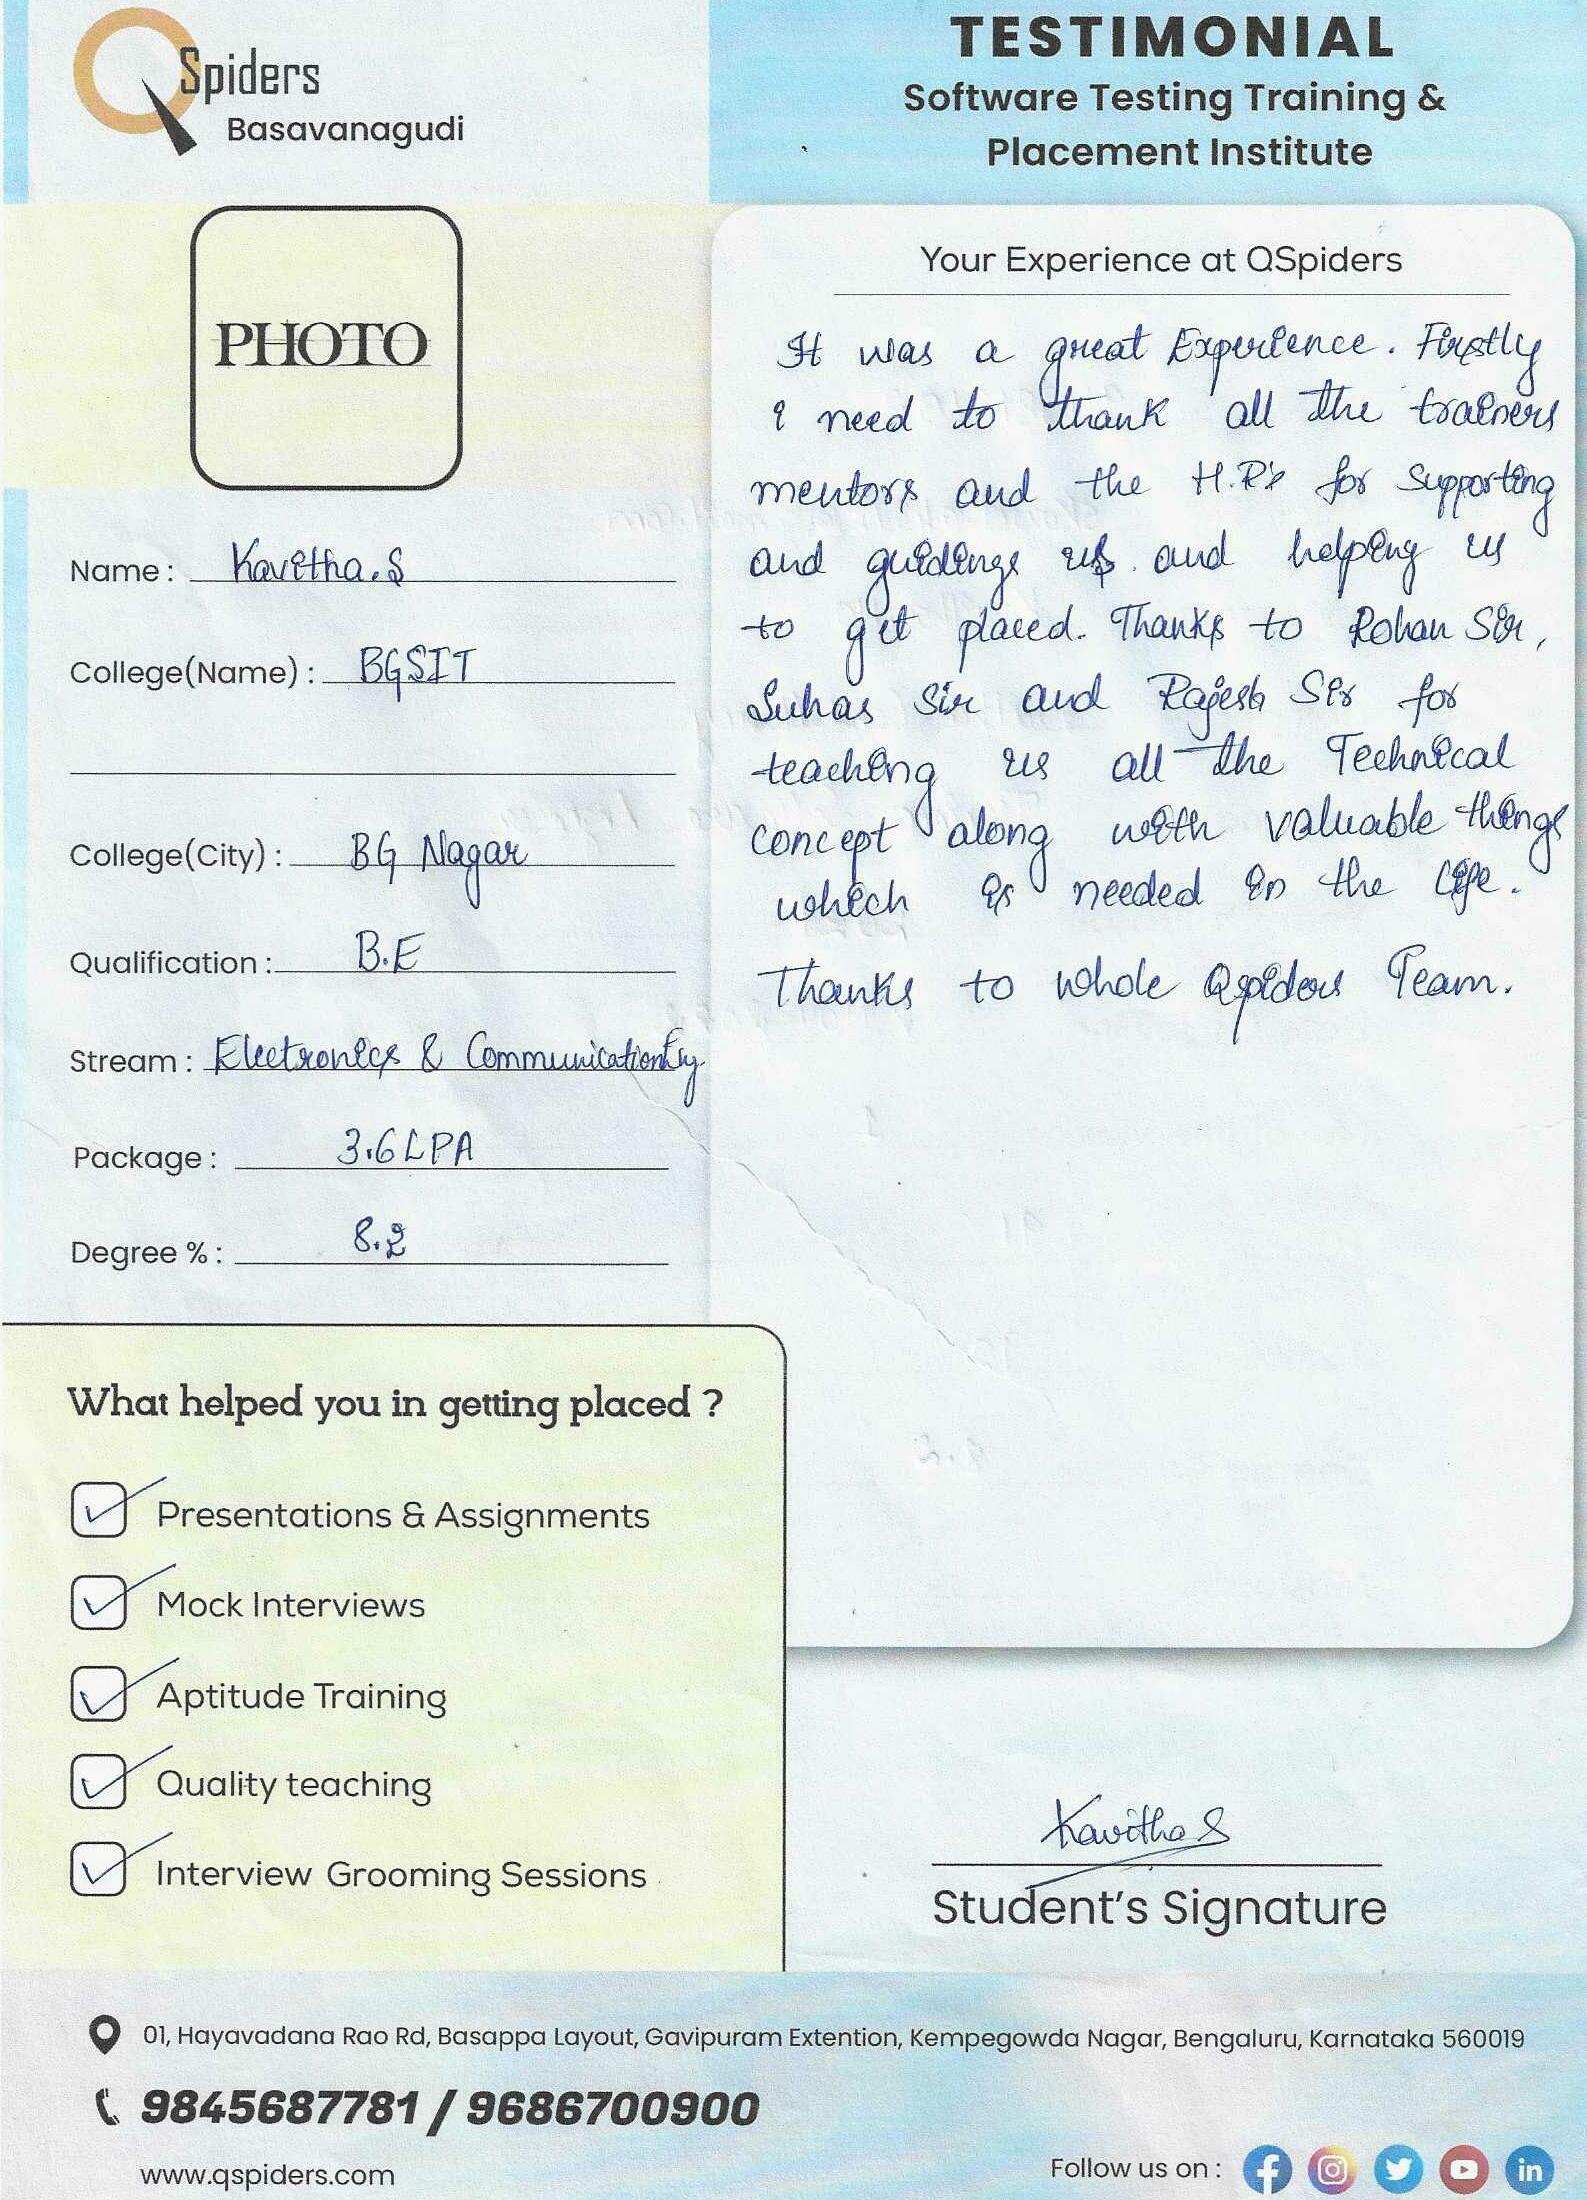 QSpiders
Basavanagudi
TESTIMONIAL
Software Testing Training &
Placement Institute
PHOTO
Name : Kavitha.S
College(Name) : BGSIT
College(City) : BG Nagar
Qualification : B.E
Stream : Electronics & Communication Eng.
Package : 3.6 LPA
Degree % : 8.2
Your Experience at QSpiders
It was a great Experience. Firstly
I need to thank all the trainers
mentors and the H.R's for Supporting
and guidings us and helping us
to get placed. Thanks to Rohan Sir,
Suhas Sir and Rajesh Sir for
teaching us all the Technical
concept along with valuable things
which is needed in the life.
Thanks to whole Qspiders Team.
What helped you in getting placed ?
Presentations & Assignments
Mock Interviews
Aptitude Training
Quality teaching
Interview Grooming Sessions
Kavitha S
Student's Signature
01, Hayavadana Rao Rd, Basappa Layout, Gavipuram Extention, Kempegowda Nagar, Bengaluru, Karnataka 560019
9845687781 / 9686700900
www.qspiders.com
Follow us on :